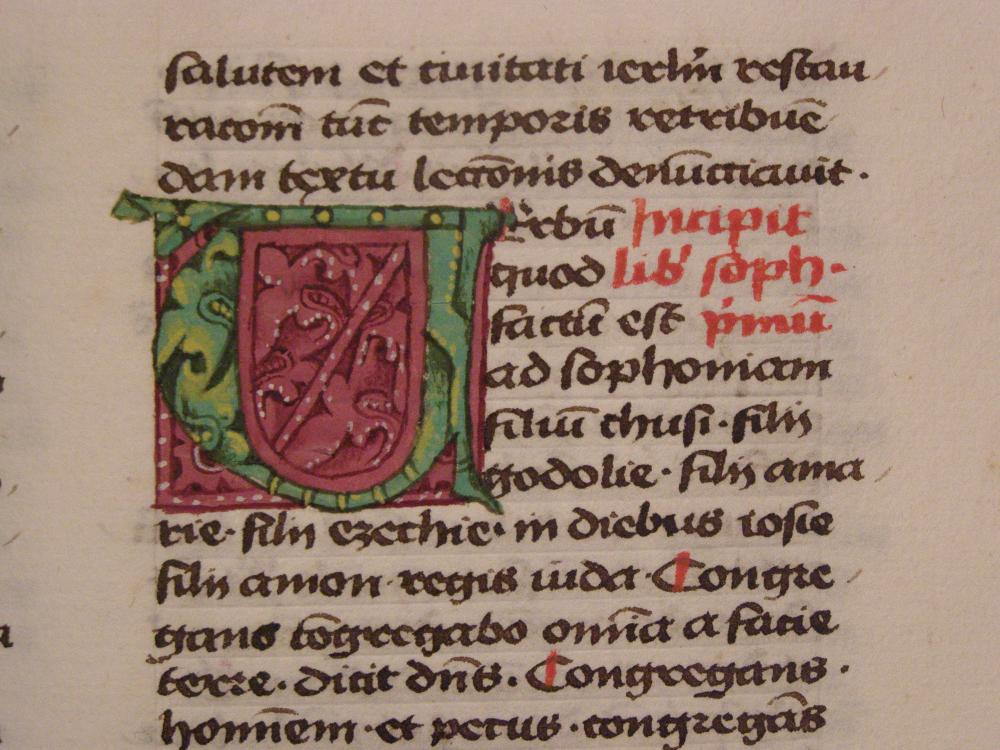 salutem et ciuitati ierlm̄ restau
racom̄ tūc temporis retribuē
dam textu lecc̄onis denūcciauit.
VErbū Incipit
quod lib' soph.
factū est p̄mū
ad sophoniam
filiū chusi. filii
godolie. filii ama
rie. filii ezechie. in diebus iosie
filii amon regis iuda Congre
gans cōgregabo omīa a facie
terre. dicit dn̄s. Congregans.
hominē̄m et pecus. congregās